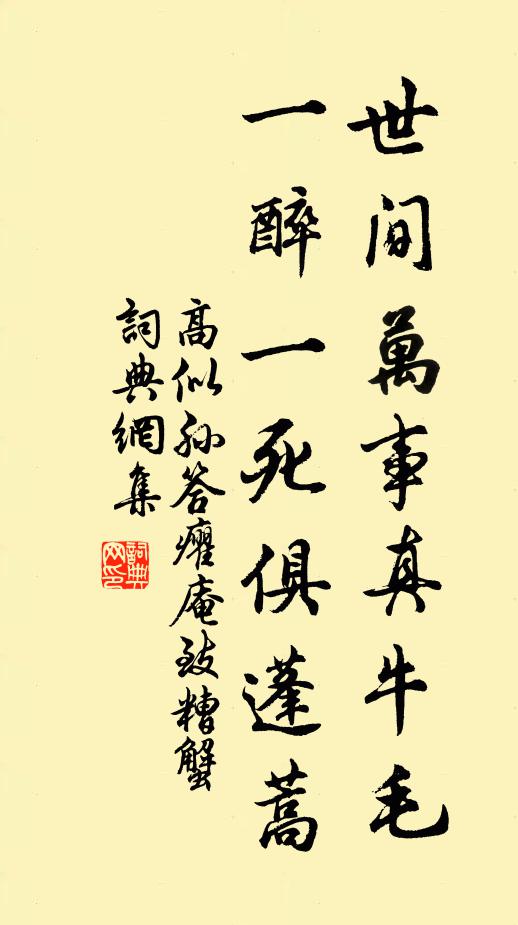 世間萬事真牛毛
一醉一死俱蓬蒿
高似孙答癯庵致糟蟹
詞典網集
詞典网印